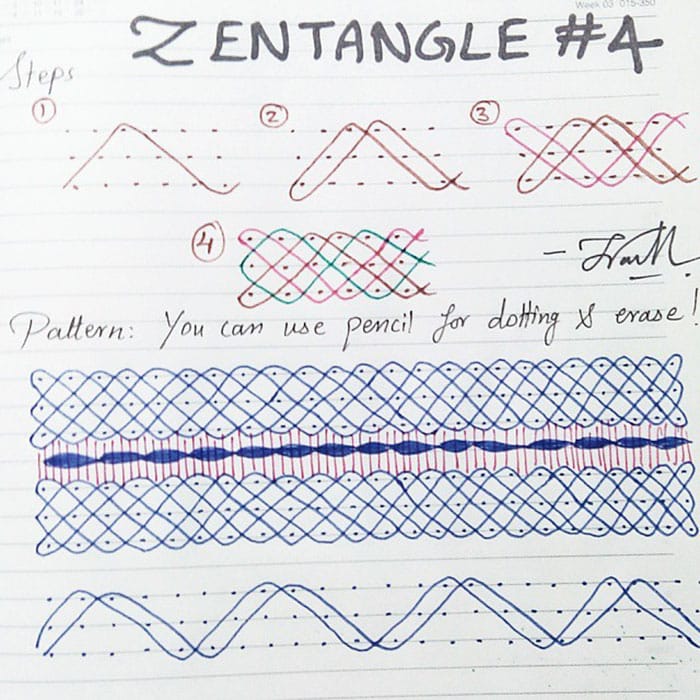 Week 03 015-350
ZENTANGLE #4
Steps
1
2
3
4
Pattern: You can use pencil for dotting & erase!